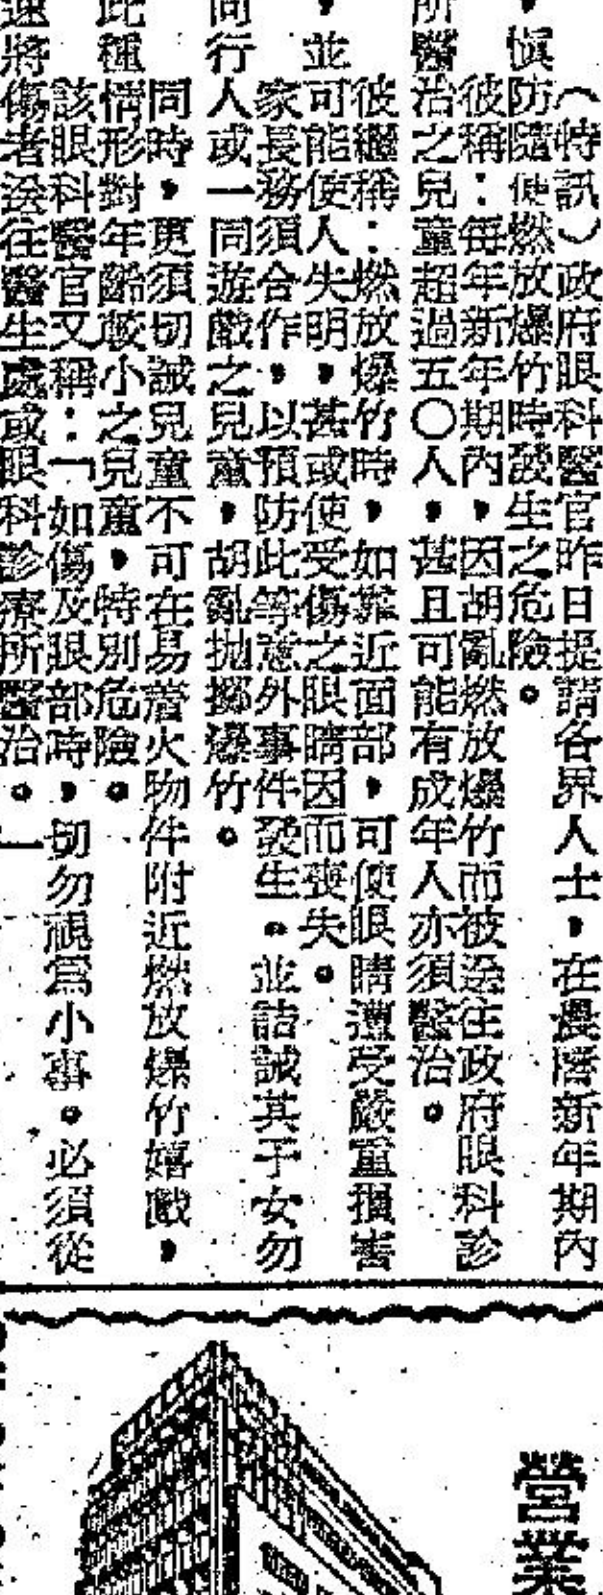 （特訊）政府眼科醫官昨日提請各界人士，在農曆新年期內
，愼防隨便燃放爆竹時發生之危險。
彼稱：每年新年期內，因胡亂燃放爆竹而被送往政府眼科診
所醫治之兒童超過五〇人，甚且可能有成年人亦須醫治。
彼繼稱：燃放爆竹時，如靠近面部，可使眼睛遭受嚴重損害
，並可能使人失明，甚或使受傷之眼睛因而喪失。
家長務須合作，以預防此等意外事件發生。並誥誡其子女勿
同行人或一同遊戲之兒童，胡亂拋擲爆竹。
同時，更須切誡兒童不可在易着火物件附近燃放爆竹嬉戲，
此種情形對年齡較小之兒童，特別危險。
該眼科醫官又稱：「如傷及眼部時，切勿視爲小事。必須從
速將傷者送往醫生處或眼科診療所醫治。」
營業